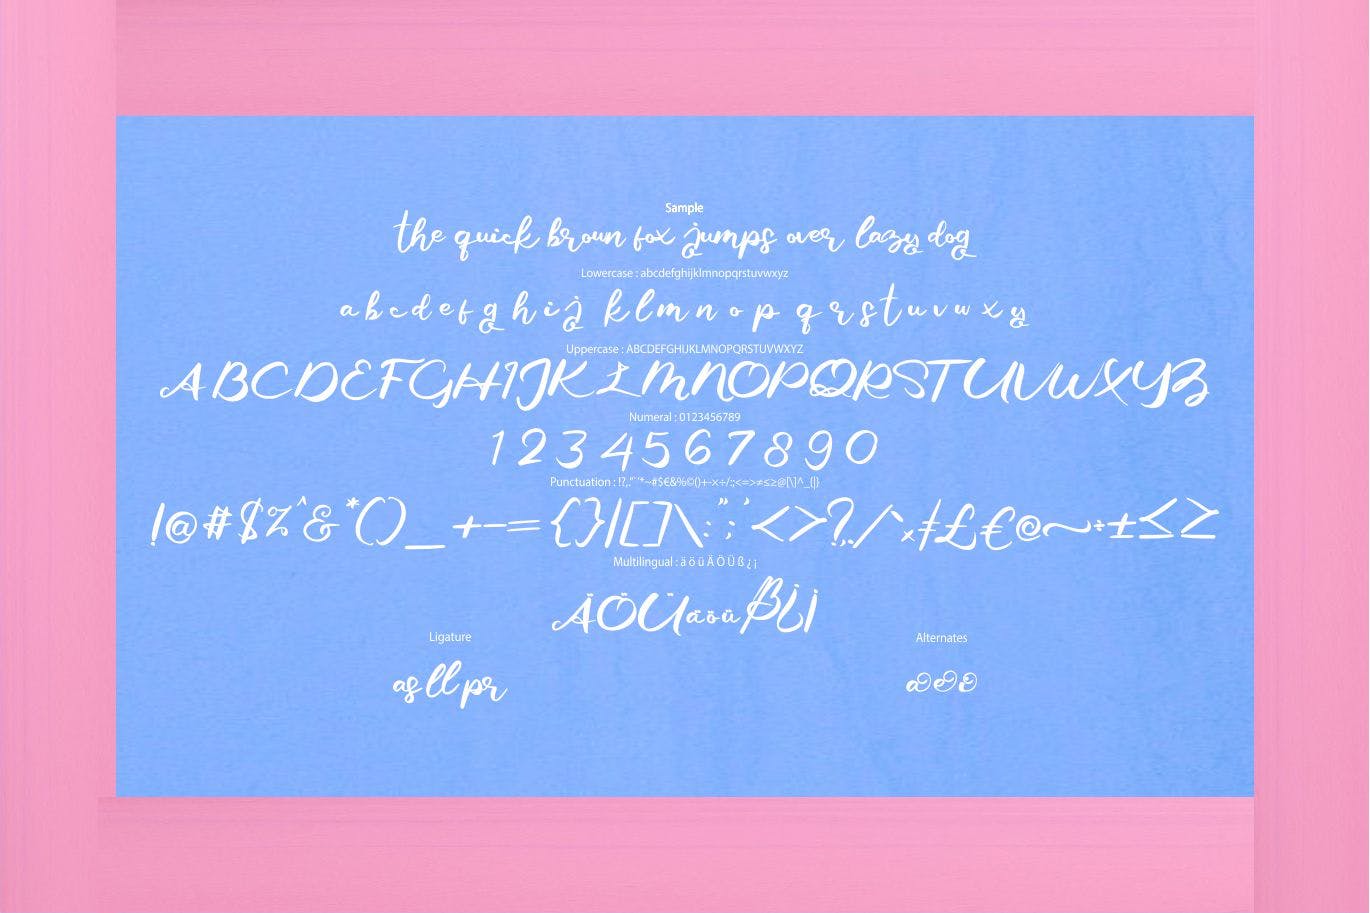 Sample
the quick broun fox jumps over lazy dog
Lowercase : abcdefghijklmnopqrstuvwxyz
a b c d e f g h i j k l m n o p q r s t u v w x y
Uppercase : ABCDEFGHIJKLMNOPQRSTUVWXYZ
ABCDEFGHIJKLMNOPQRSTUVWXYZ
Numeral : 0123456789
1 2 3 4 5 6 7 8 9 0
Punctuation : !?,."¨'*~#$€&%©()+-×÷/:;<=>≠≤≥@[\]^_{|}
!@#$%^&*()_+-={}|[]\:";'<>?,./`×≠£€©~÷±≤≥
Multilingual : ä ö ü Ä Ö Ü ß ¿ ¡
ÄÖÜäöüß¿¡
Ligature
Alternates
as ll pr
aeo